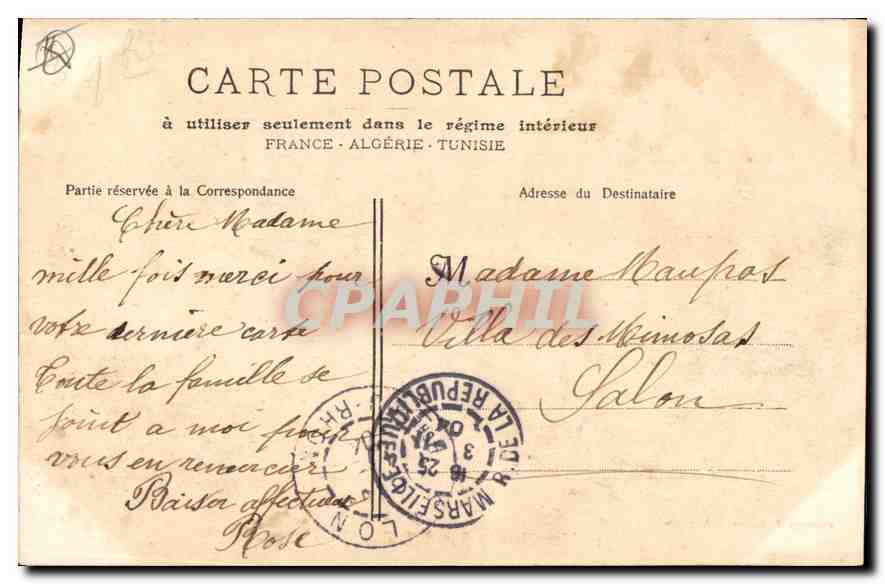 CARTE POSTALE
à utiliser seulement dans le régime intérieur
FRANCE - ALGÉRIE - TUNISIE
Partie réservée à la Correspondance
Adresse du Destinataire
Chère Madame
mille fois merci pour
votre dernière carte
Toute la famille se
joint a moi pour
vous en remercier
Baiser affectueux
Rose
Madame Maupas
Villa des Mimosas
Salon
CPAPHIL
MARSEILLE R. DE LA RÉPUBLIQUE
16 25
3
04
LON
RHÔNE